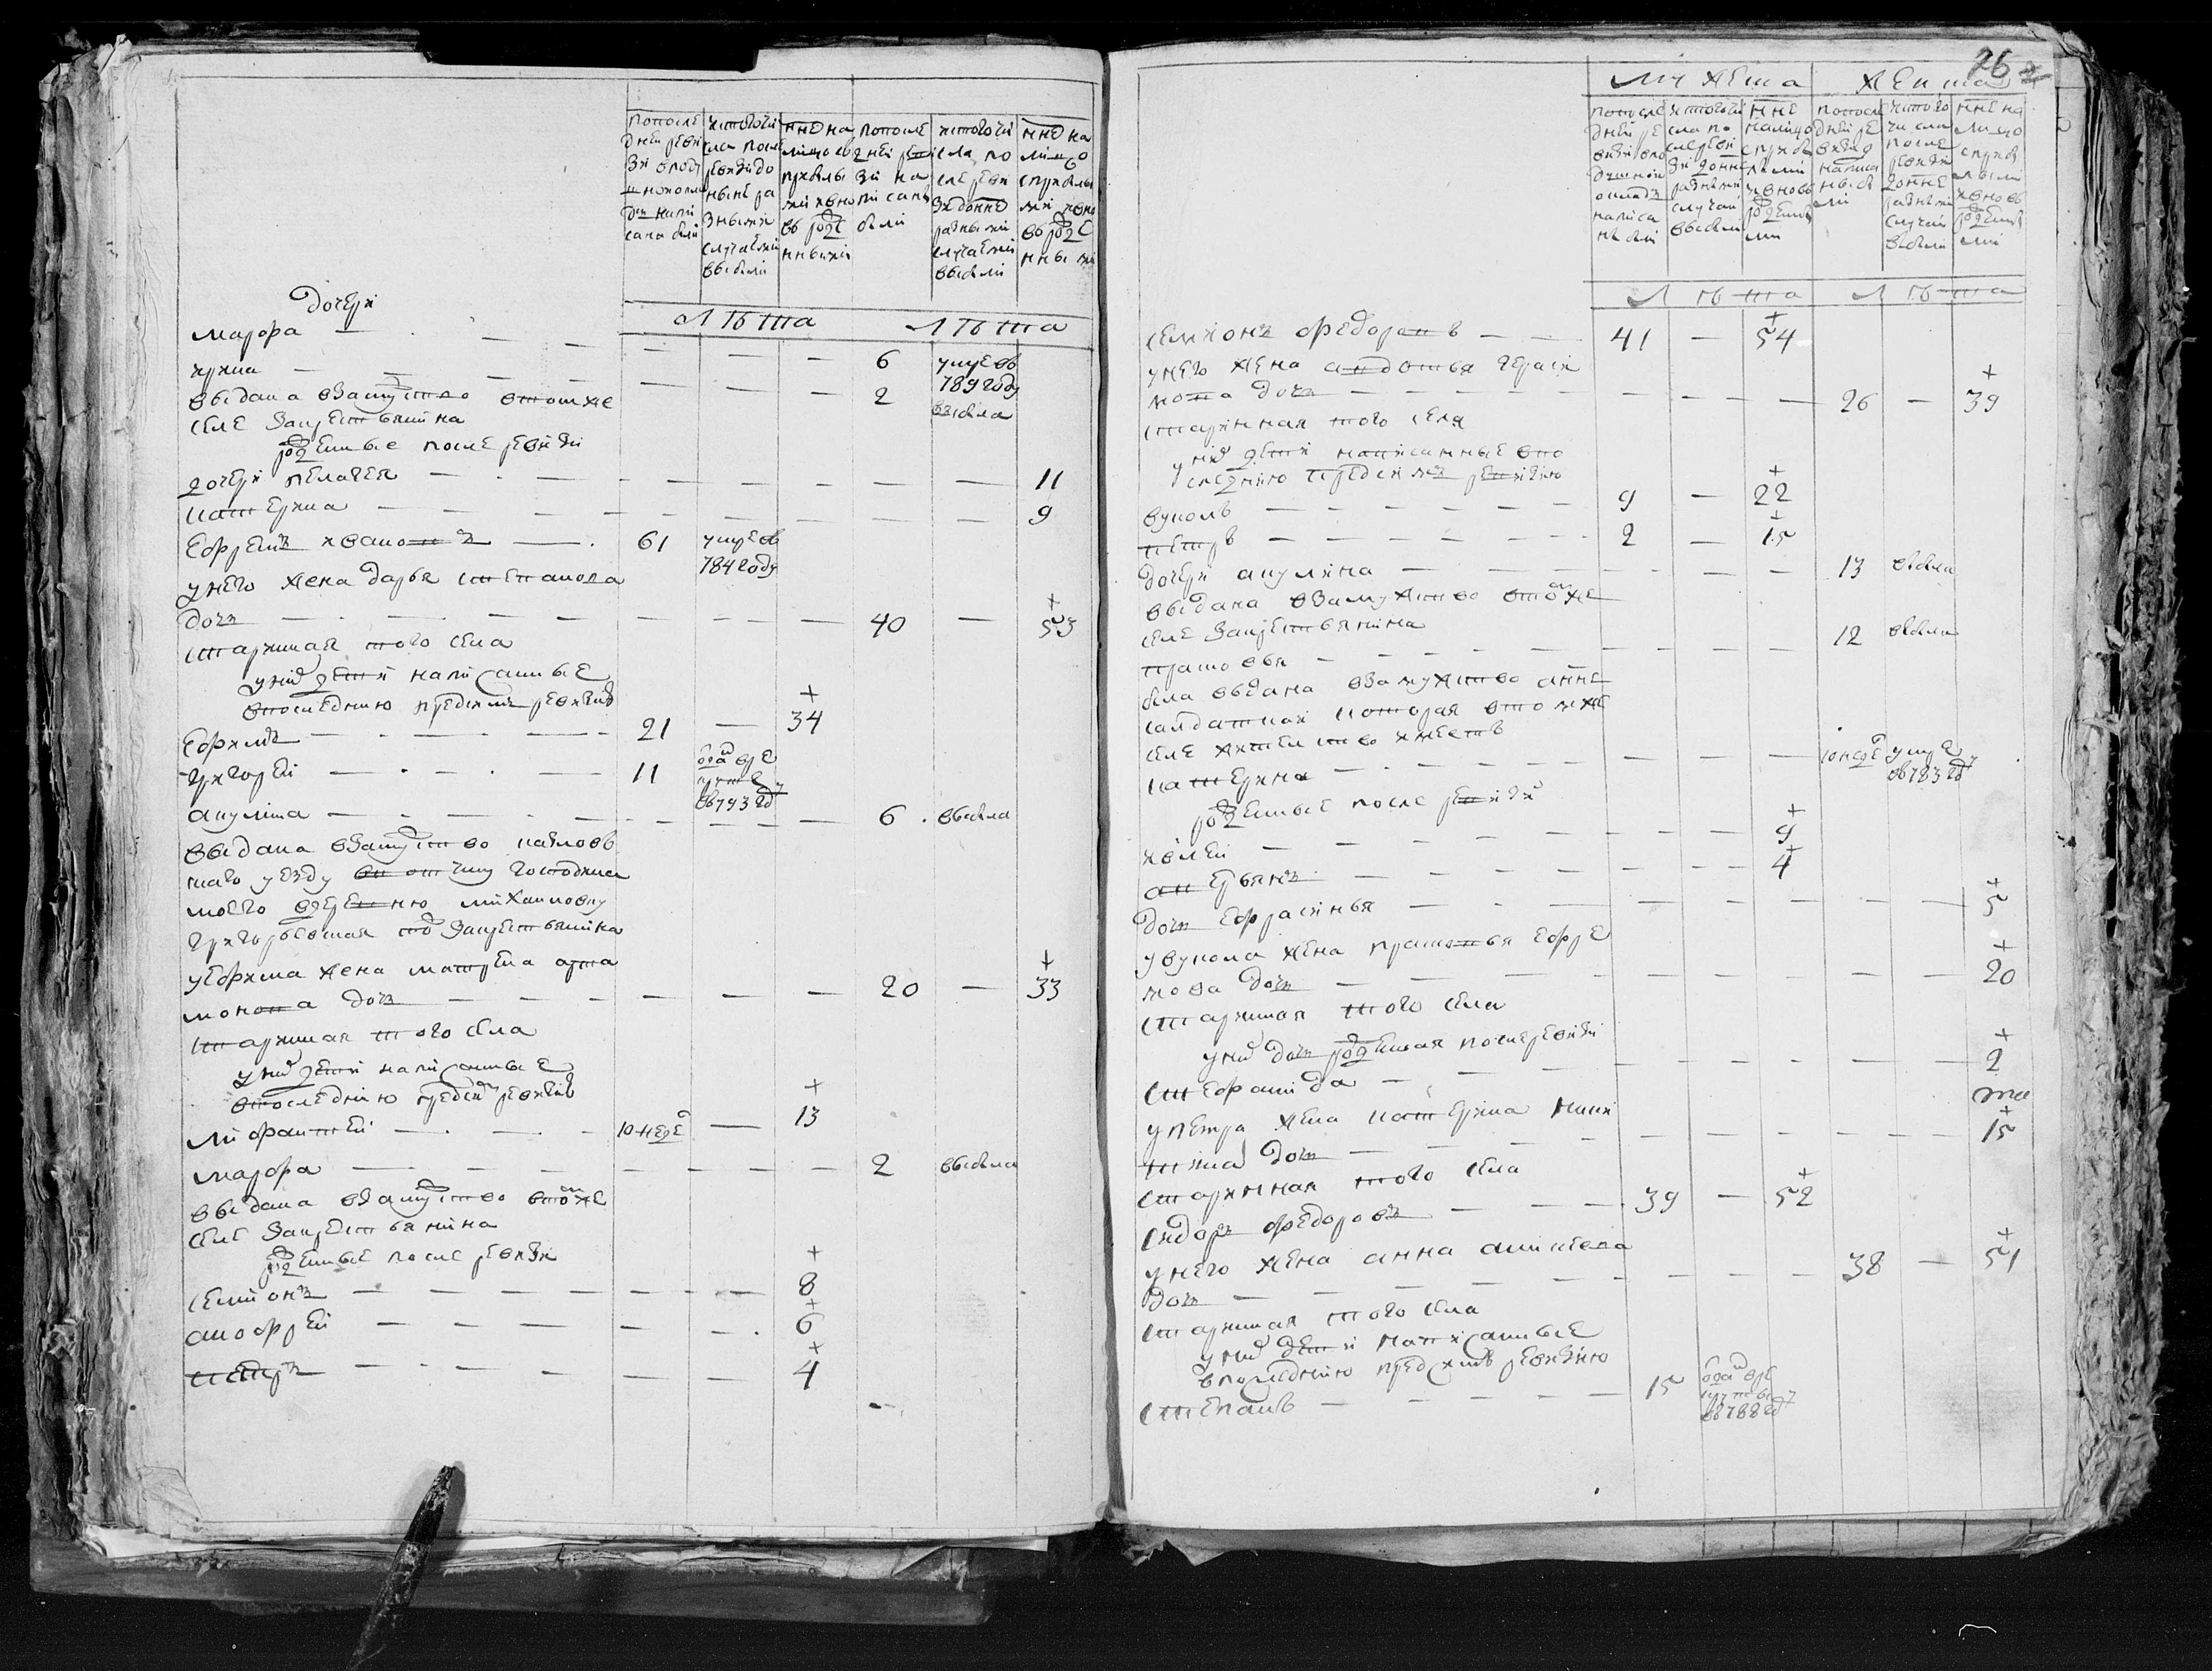 попосле
дней реви
зи вподу
шномокла
де напи
саны были
истого чи
сла после
ревизи до
ныне ра
зными
случаями
выбыли
нне на
лицо со
прибылы
ми и вно
вь рожде
нными
попосле
дней реви
зи на
писаны
были
истого чи
сла по
сле реви
зи до нне
разными
случаями
выбыли
нне на
лицо
сприбылы
ми и вно
вь рожде
нными
лѣта лѣта
дочери
марфа — — — 6 умре въ
789 году
ирина — — — 2 выбыла
выдана взамужство втомже
селе закрестьянина
рожденные после ревизи
дочери пелагея — — — 11
катерина — — — 9
ефремъ ивановъ — 61 умре въ
784 году
у него жена дарья степанова
дочь — — — 40 — 53
старинная того села
у них дети написанные
впоследнюю предсимъ ревизию
ефимъ — 21 — 34
григорей — 11 отданъ вре
круты
въ 793 году
акулина — — — 6 выбыла
выдана взамужство павловъ
скаго уезду вотчину господина
моего вдеревню михаиловку
григорьевская то закрестьянина
у ефима жена матрена арта
монова дочь — — — 20 — 33
старинная того села
у них дети написанные
впоследнюю предсимъ ревизию
мифантей — 10 неде — 13
марфа — — — 2 выбыла
выдана взамужство втомже
селе закрестьянина
рожденные после ревизи
семионъ — — — 8
анофрей — — — 6
петръ — — — 4
26
мужеска женска
попосле
дней ре
визи впо
душном
окладъ
написа
ны были
истого чи
сла по
сле реви
зи до нне
разными
случаи
выбыли
нне
налицо
сприбы
лыми
и вновь
рожденны
ми
попосле
дней ре
визи
написа
ны бы
ли
истого
чи сла
после
ревизи
до нне
разными
случаи
выбыли
нне на
лицо
сприбы
лыми
и вновь
рожденны
ми
лѣта лѣта
семионъ федоровъ — 41 — 54
у него жена авдотья гераси
мова дочь — — — 26 — 39
старинная того села
у них дети написанные впо
следнюю предсимъ ревизию
вуколъ — 9 — 22
петръ — 2 — 15
дочери акулина — — — 13 выбыла
выдана взамужство втомже
селе закрестьянина
прасковья — — — 12 выбыла
была выдана взамужство
салдатской которая втомже
селе жительство имеетъ
катерина — — — 10 неде умре
въ 783 году
рожденные после ревизи
— — — 9
аверьянъ — — — 4
дочь ефрасинья — — — 5
у вукола жена прасковья ефре
мова дочь — — — 20
старинная того села
у них дочь рожденная после ревизи
стефанида — — — 2
у петра жена катерина ники
тина дочь — — — 15
старинная того села
сидоръ федоровъ — 39 — 52
у него жена анна аникеева
дочь — — — 38 — 51
старинная того села
у них дети написанные
впоследнюю предсимъ ревизию
степанъ — 15 отданъ вре
круты
въ 788 году